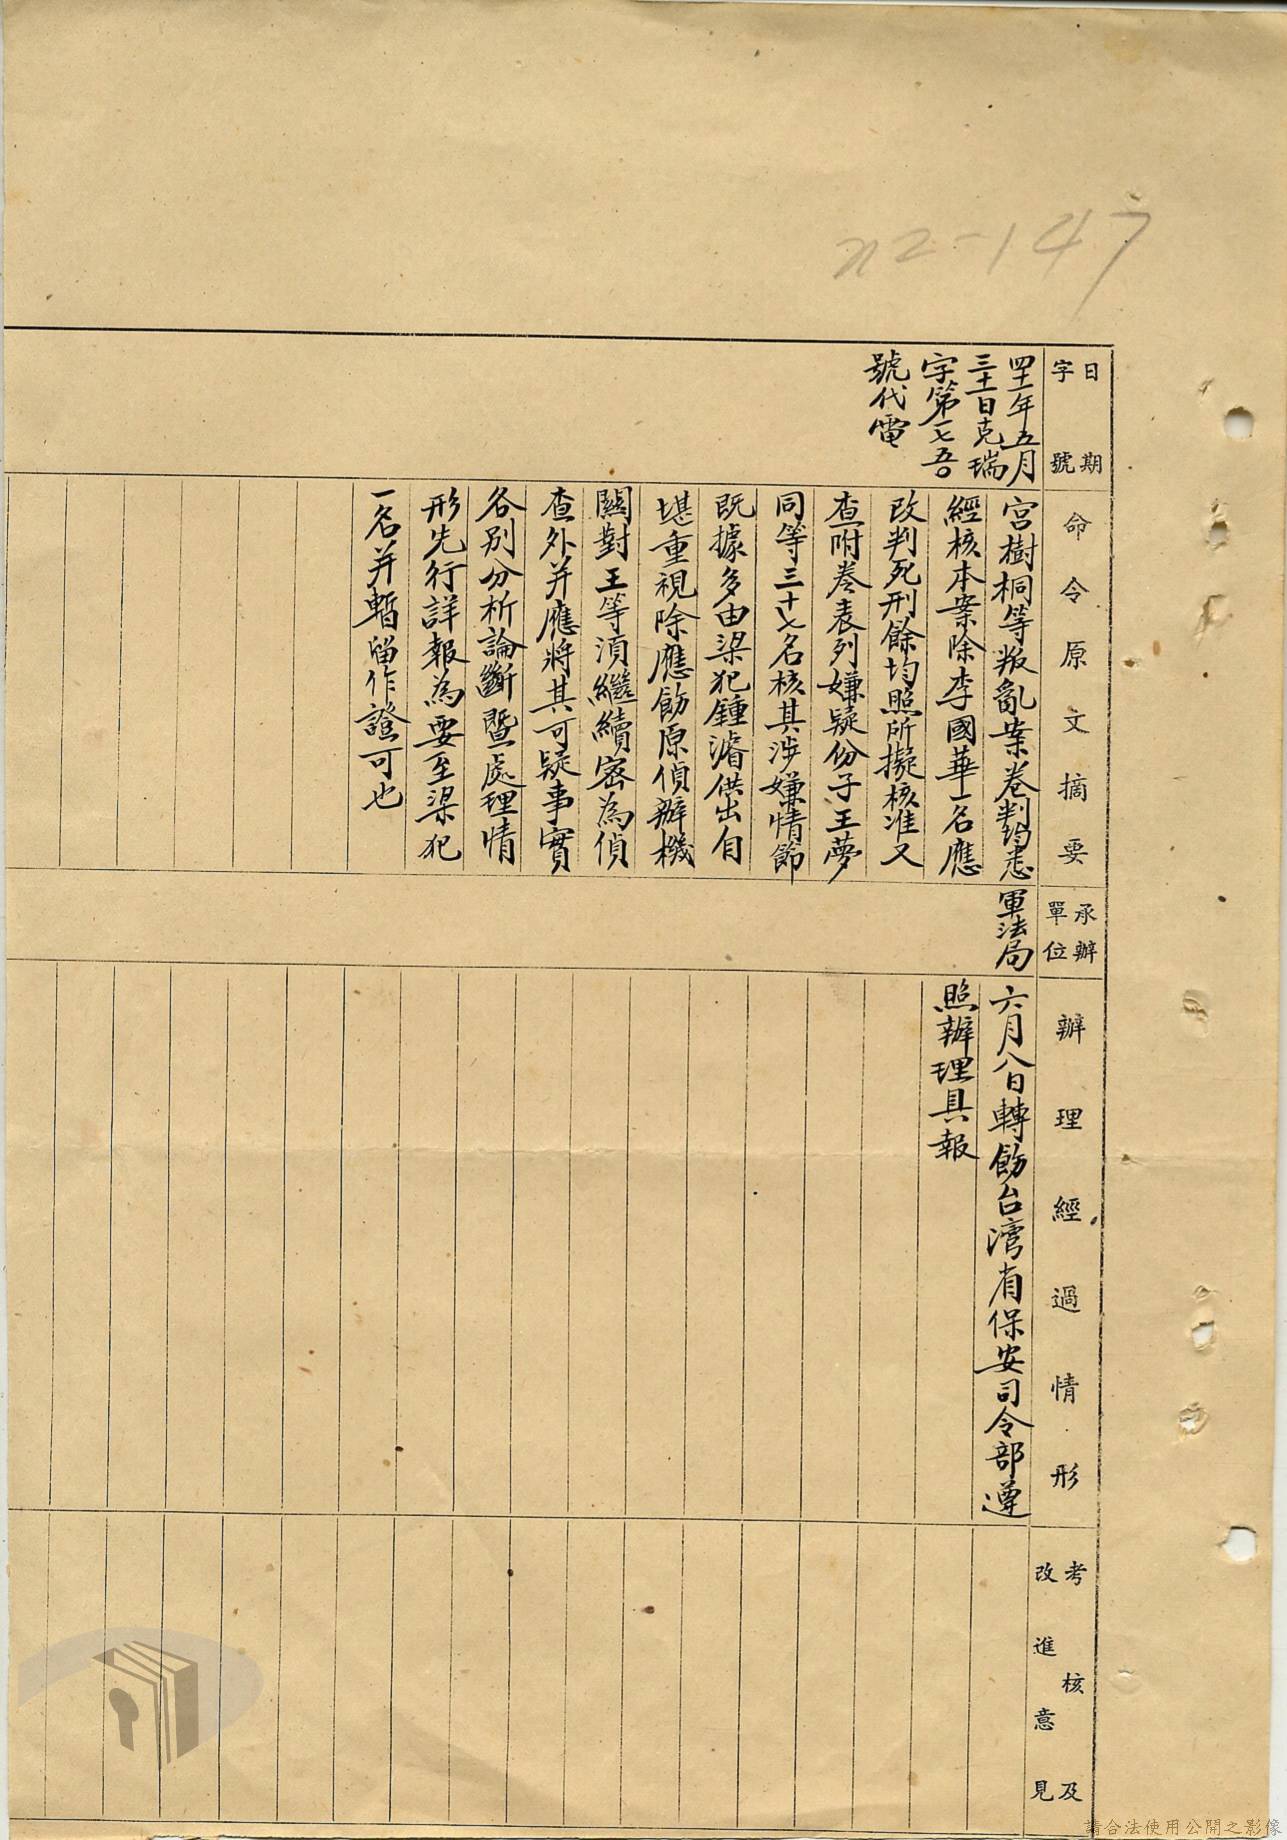 n2-147
日期
字號
命令原文摘要
承辦
單位
辦理經過情形
考核及
改進意見
四十一年五月
三十一日克瑞
字第一七五〇
號代電
宮樹桐等叛亂案卷判均悉
經核本案除李國華一名應
改判死刑餘均照所擬核准又
查附卷表列嫌疑份子王夢
同等三十七名核其涉嫌情節
既據多由梁犯鍾濬供出自
堪重視除應飭原偵辦機
關對王等須繼續密為偵
查外并應將其可疑事實
各別分析論斷暨處理情
形先行詳報為要至梁犯
一名并暫留作證可也
軍法局
六月八日轉飭台灣省保安司令部遵
照辦理具報
請合法使用公開之影像